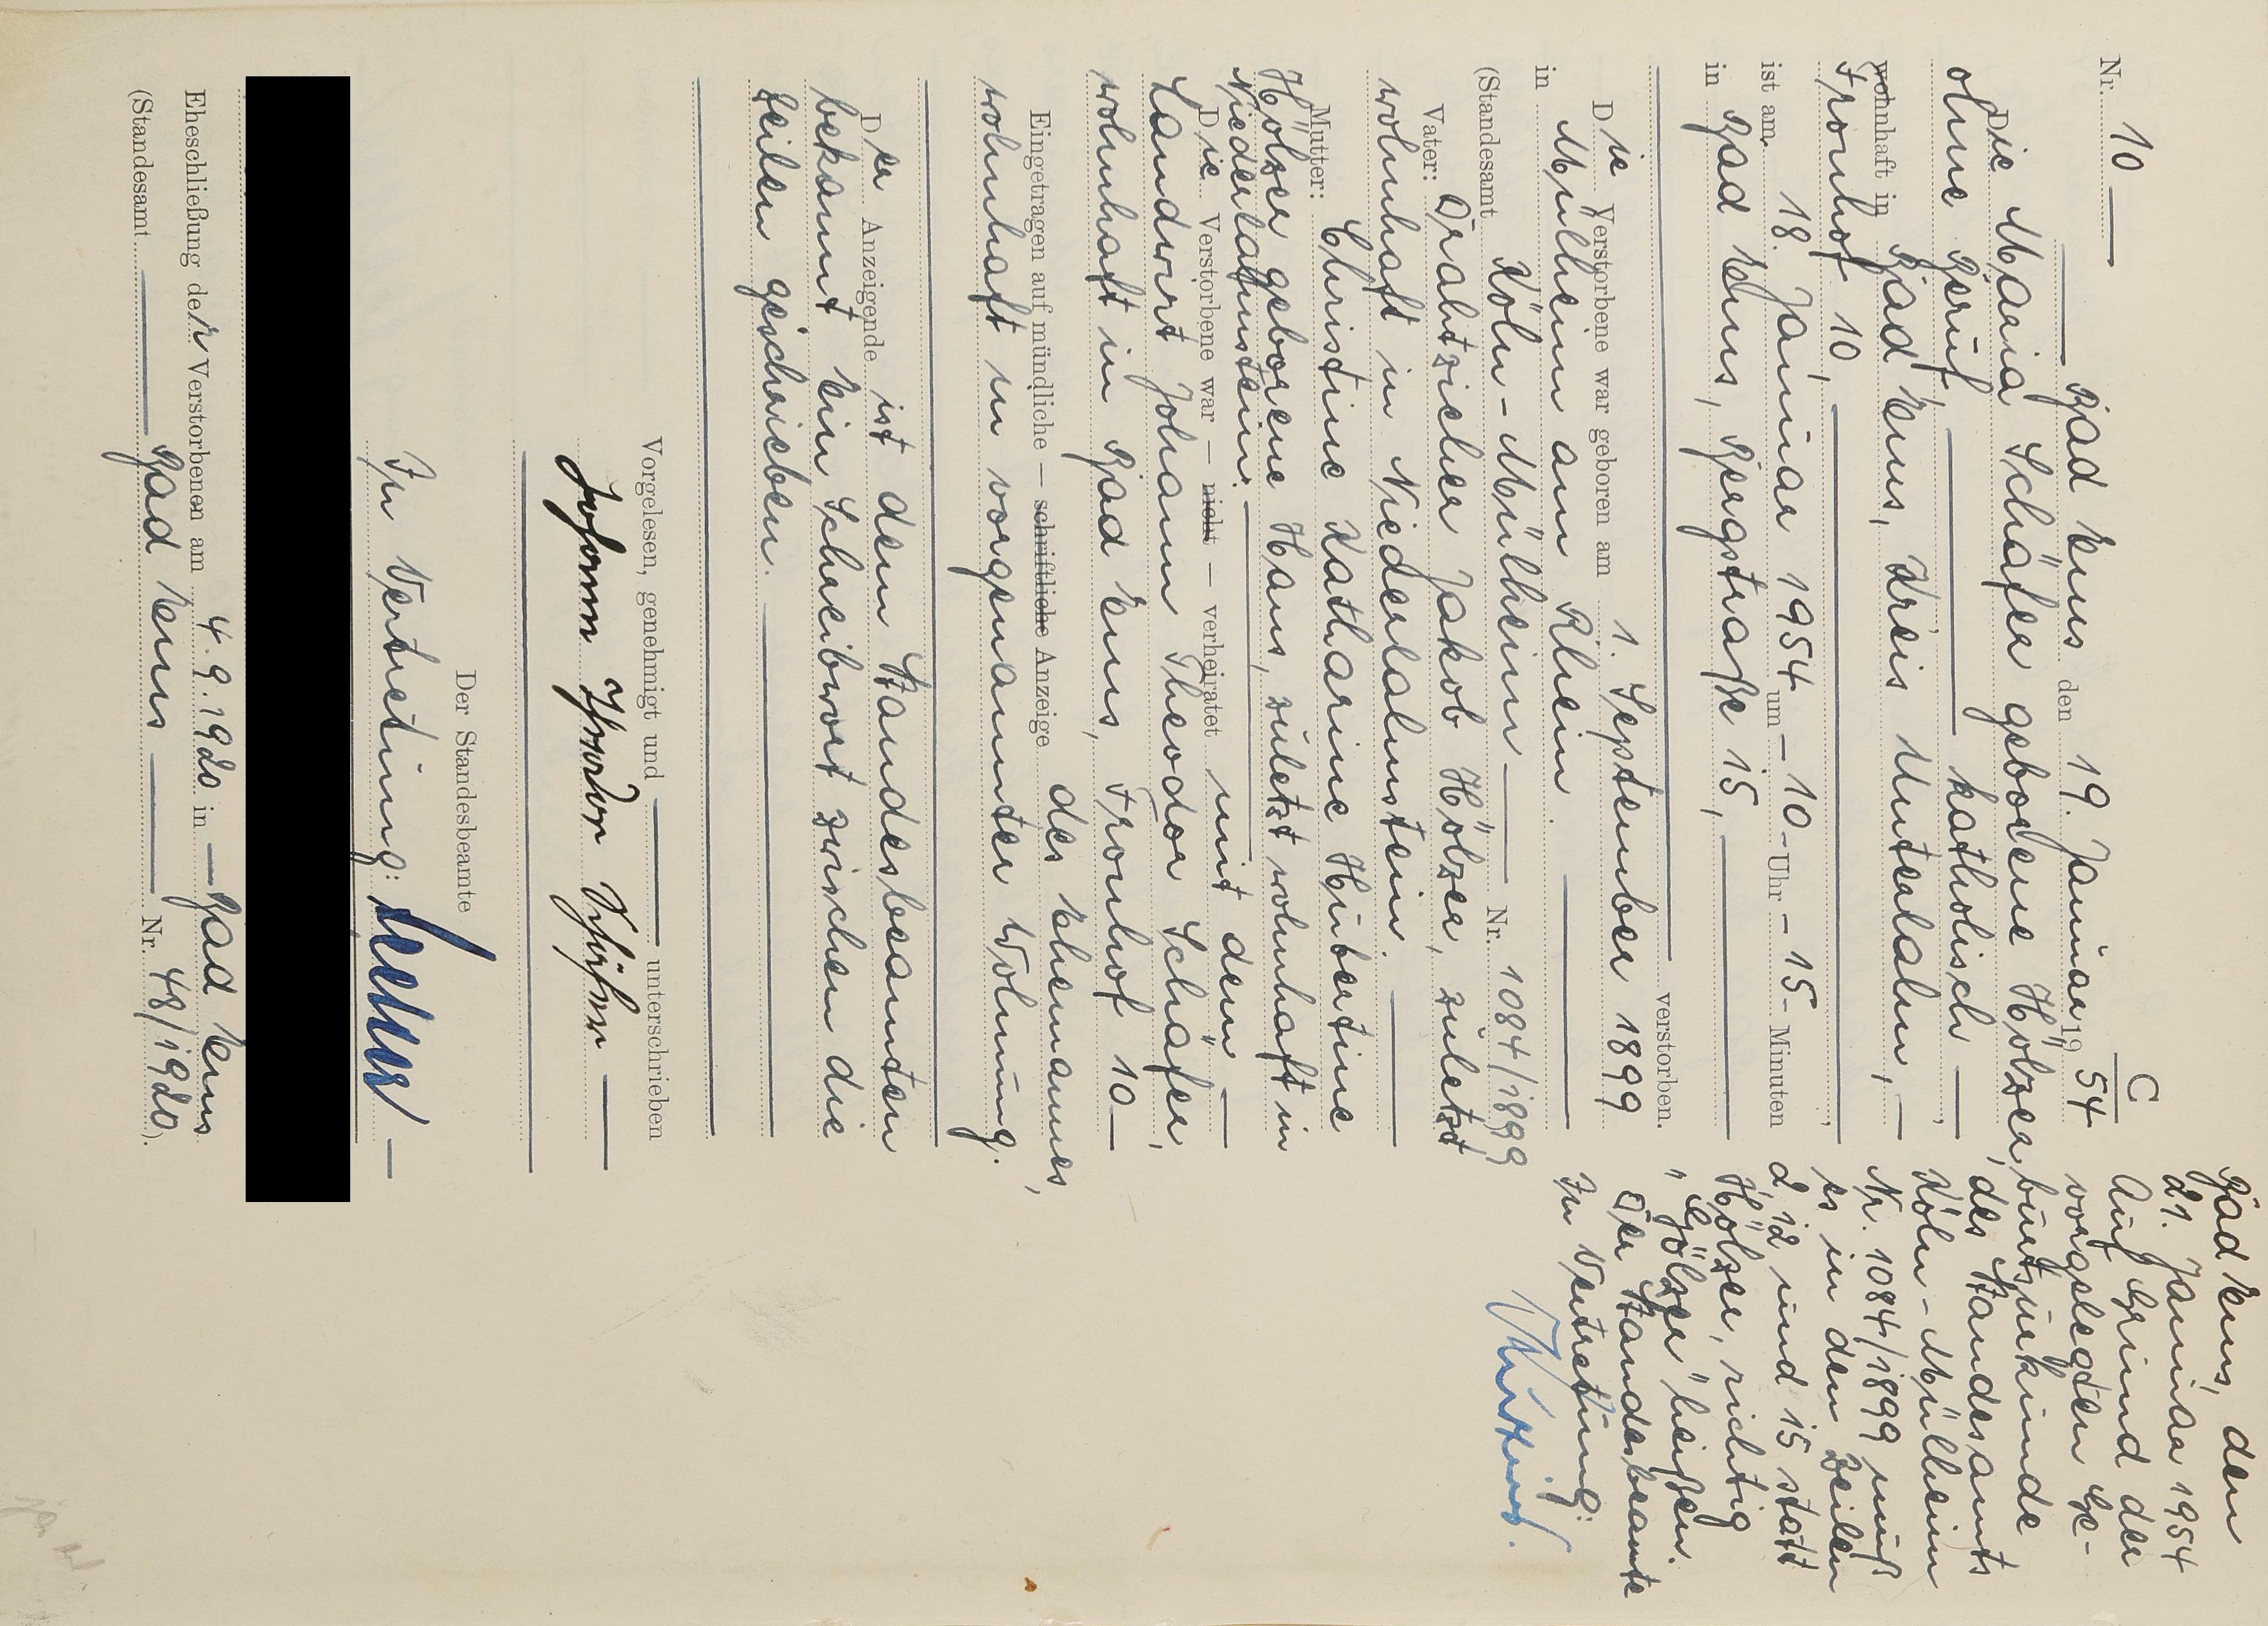 C
Nr. 10
Bad Ems den 19. Januar 1954
Die Maria Schäfer geborene Hölzer,
ohne Beruf, katholisch,
wohnhaft in Bad Ems, Kreis Unterlahn,
Fronhof 10,
ist am 18. Januar 1954 um - 10 - Uhr - 15 - Minuten
in Bad Ems, Bergstraße 15,
verstorben.
Die Verstorbene war geboren am 1. September 1899
in Mülheim am Rhein.
(Standesamt Köln-Mülheim Nr. 1084/1899
Vater: Drahtzieher Jakob Hölzer, zuletzt
wohnhaft in Niederlahnstein.
Mutter: Christine Katharine Hubertine
Hölzer geborene Hans, zuletzt wohnhaft in
Niederlahnstein.
Die Verstorbene war — nicht — verheiratet mit dem
Landwirt Johann Theodor Schäfer,
wohnhaft in Bad Ems, Fronhof 10
Eingetragen auf mündliche — schriftliche Anzeige des Ehemannes,
wohnhaft in vorgenannter Wohnung.
Der Anzeigende ist dem Standesbeamten
bekannt. Ein Schreibwort zwischen die
Zeilen geschrieben.
Vorgelesen, genehmigt und unterschrieben
Johann Theodor Schäfer
Der Standesbeamte
In Vertretung:
Eheschließung der Verstorbenen am 4.9.1920 in Bad Ems.
(Standesamt Bad Ems Nr. 48/1920).
Bad Ems, den
21. Januar 1954
Auf Grund der
vorgelegten Ge-
burtsurkunde
des Standesamts
Köln-Mülheim
Nr. 1084/1899 muß
es in den Zeilen
2, 12 und 15 statt
Hölzer, richtig
"Gölzer" heißen.
Der Standesbeamte
In Vertretung: